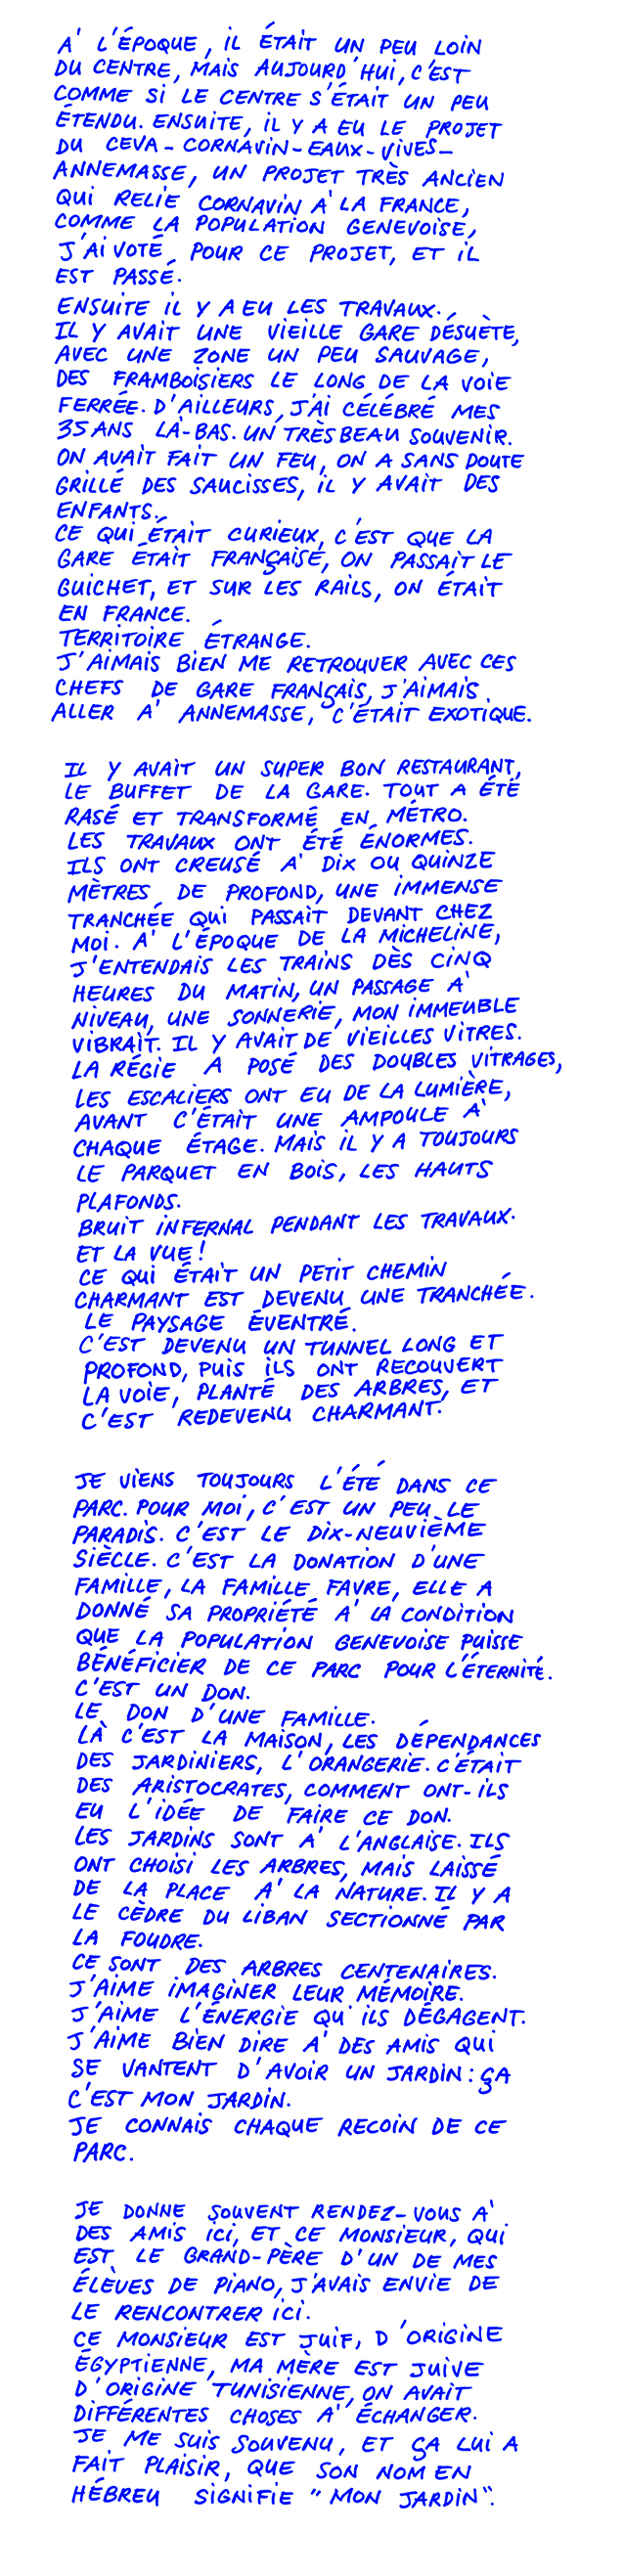 À L'ÉPOQUE, IL ÉTAIT UN PEU LOIN
DU CENTRE, MAIS AUJOURD'HUI, C'EST
COMME SI LE CENTRE S'ÉTAIT UN PEU
ÉTENDU. ENSUITE, IL Y A EU LE PROJET
DU CEVA-CORNAVIN-EAUX-VIVES-
ANNEMASSE, UN PROJET TRÈS ANCIEN
QUI RELIE CORNAVIN À LA FRANCE,
COMME LA POPULATION GENEVOISE,
J'AI VOTÉ POUR CE PROJET, ET IL
EST PASSÉ.
ENSUITE IL Y A EU LES TRAVAUX.
IL Y AVAIT UNE VIEILLE GARE DÉSUÈTE,
AVEC UNE ZONE UN PEU SAUVAGE,
DES FRAMBOISIERS LE LONG DE LA VOIE
FERRÉE. D'AILLEURS, J'AI CÉLÉBRÉ MES
35 ANS LÀ-BAS. UN TRÈS BEAU SOUVENIR.
ON AVAIT FAIT UN FEU, ON A SANS DOUTE
GRILLÉ DES SAUCISSES, IL Y AVAIT DES
ENFANTS.
CE QUI ÉTAIT CURIEUX, C'EST QUE LA
GARE ÉTAIT FRANÇAISE, ON PASSAIT LE
GUICHET, ET SUR LES RAILS, ON ÉTAIT
EN FRANCE.
TERRITOIRE ÉTRANGE.
J'AIMAIS BIEN ME RETROUVER AVEC CES
CHEFS DE GARE FRANÇAIS, J'AIMAIS
ALLER À ANNEMASSE, C'ÉTAIT EXOTIQUE.
IL Y AVAIT UN SUPER BON RESTAURANT,
LE BUFFET DE LA GARE. TOUT A ÉTÉ
RASÉ ET TRANSFORMÉ EN MÉTRO.
LES TRAVAUX ONT ÉTÉ ÉNORMES.
ILS ONT CREUSÉ À DIX OU QUINZE
MÈTRES DE PROFOND, UNE IMMENSE
TRANCHÉE QUI PASSAIT DEVANT CHEZ
MOI. À L'ÉPOQUE DE LA MICHELINE,
J'ENTENDAIS LES TRAINS DÈS CINQ
HEURES DU MATIN, UN PASSAGE À
NIVEAU, UNE SONNERIE, MON IMMEUBLE
VIBRAIT. IL Y AVAIT DE VIEILLES VITRES.
LA RÉGIE A POSÉ DES DOUBLES VITRAGES,
LES ESCALIERS ONT EU DE LA LUMIÈRE,
AVANT C'ÉTAIT UNE AMPOULE À
CHAQUE ÉTAGE. MAIS IL Y A TOUJOURS
LE PARQUET EN BOIS, LES HAUTS
PLAFONDS.
BRUIT INFERNAL PENDANT LES TRAVAUX.
ET LA VUE!
CE QUI ÉTAIT UN PETIT CHEMIN
CHARMANT EST DEVENU UNE TRANCHÉE.
LE PAYSAGE ÉVENTRÉ.
C'EST DEVENU UN TUNNEL LONG ET
PROFOND, PUIS ILS ONT RECOUVERT
LA VOIE, PLANTÉ DES ARBRES, ET
C'EST REDEVENU CHARMANT.
JE VIENS TOUJOURS L'ÉTÉ DANS CE
PARC. POUR MOI, C'EST UN PEU LE
PARADIS. C'EST LE DIX-NEUVIÈME
SIÈCLE. C'EST LA DONATION D'UNE
FAMILLE, LA FAMILLE FAVRE, ELLE A
DONNÉ SA PROPRIÉTÉ À LA CONDITION
QUE LA POPULATION GENEVOISE PUISSE
BÉNÉFICIER DE CE PARC POUR L'ÉTERNITÉ.
C'EST UN DON.
LE DON D'UNE FAMILLE.
LÀ C'EST LA MAISON, LES DÉPENDANCES
DES JARDINIERS, L'ORANGERIE. C'ÉTAIT
DES ARISTOCRATES, COMMENT ONT-ILS
EU L'IDÉE DE FAIRE CE DON.
LES JARDINS SONT À L'ANGLAISE. ILS
ONT CHOISI LES ARBRES, MAIS LAISSÉ
DE LA PLACE À LA NATURE. IL Y A
LE CÈDRE DU LIBAN SECTIONNÉ PAR
LA FOUDRE.
CE SONT DES ARBRES CENTENAIRES.
J'AIME IMAGINER LEUR MÉMOIRE.
J'AIME L'ÉNERGIE QU'ILS DÉGAGENT.
J'AIME BIEN DIRE À DES AMIS QUI
SE VANTENT D'AVOIR UN JARDIN: ÇA
C'EST MON JARDIN.
JE CONNAIS CHAQUE RECOIN DE CE
PARC.
JE DONNE SOUVENT RENDEZ-VOUS À
DES AMIS ICI, ET CE MONSIEUR, QUI
EST LE GRAND-PÈRE D'UN DE MES
ÉLÈVES DE PIANO, J'AVAIS ENVIE DE
LE RENCONTRER ICI.
CE MONSIEUR EST JUIF, D'ORIGINE
ÉGYPTIENNE, MA MÈRE EST JUIVE
D'ORIGINE TUNISIENNE, ON AVAIT
DIFFÉRENTES CHOSES À ÉCHANGER.
JE ME SUIS SOUVENU, ET ÇA LUI A
FAIT PLAISIR, QUE SON NOM EN
HÉBREU SIGNIFIE "MON JARDIN".